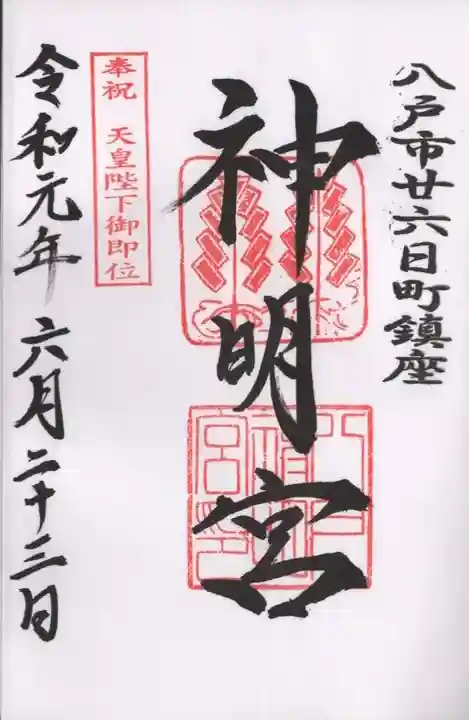 八戸市廿六日町鎮座
神明宮
奉祝 天皇陛下御即位
令和元年六月二十三日